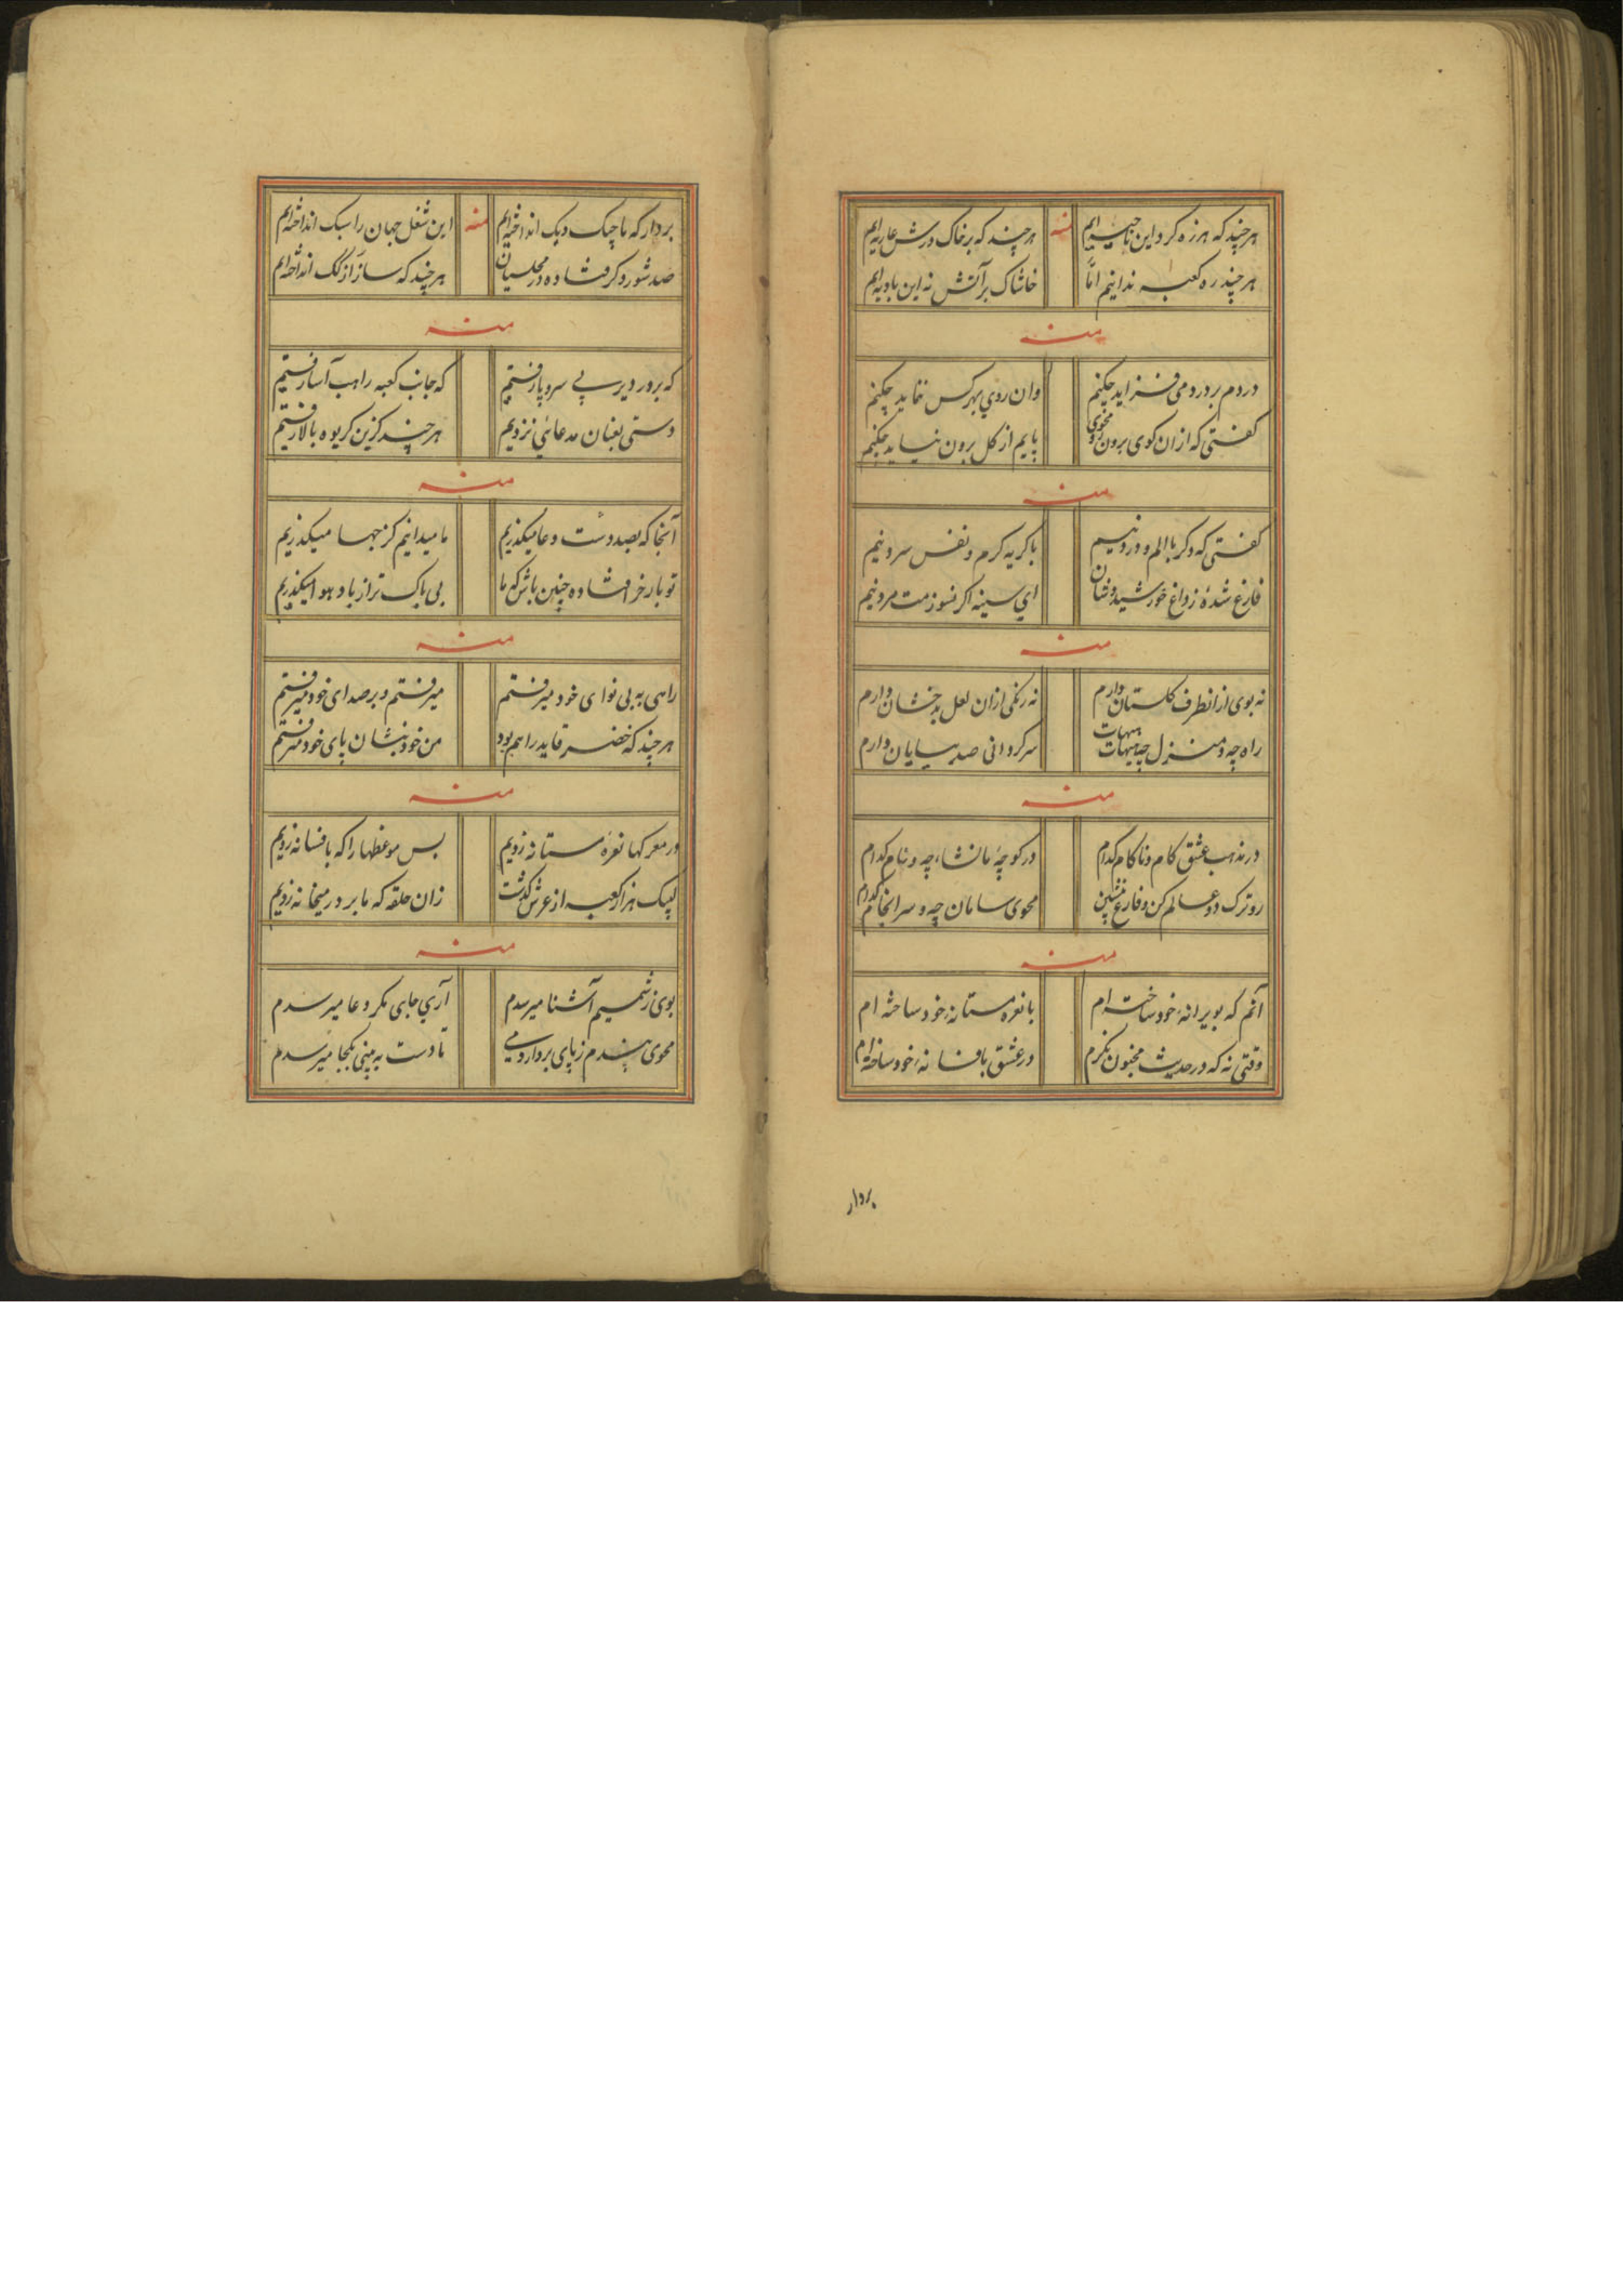 هر چند که هرزه کرد این ناحیه ایم منه هر چند که بر خاک درش عاریه ایم
هر چند ره کعبه ندانیم امّا خاشاک بر آتش نه این بادیه ایم
منه
دردم بر درد می فزاید چکنم وان روی بهر کس ننماید چکنم
کفتی که ازان کوی برون رو محوی پایم از کل برون نیاید چکنم
منه
کفتی که دکر با الم و درد نیم با کریه کرم و نفس سرد نیم
فارغ شدهٔ ز داغ خورشید وشان ای سینه اکر نسوزمت مرد نیم
منه
نه بوی ازانطرف کلستان دارم نه رنکی ازان لعل بدخشان دارم
راه چه و منزل چه هیهات هیهات سرکردانی صد بیابان دارم
منه
در مذهب عشق کام و ناکام کدام در کوچهٔ ما نشاء چه و نام کدام
رو ترک دو عالم کن و فارغ بنشین محوی سامان چه و سرانجام کدام
منه
آنم که بویرانهٔ خود ساخته ام با نعره مستانهٔ خود ساخته ام
وقتی نه که در حدیث مجنون نکرم در عشق بافسانهٔ خود ساخته ام
بردار
بردار که ما چنک و یک انداخته ایم منه این شغل جهان را سبک انداخته ایم
صد شور دکر فتاده در مجلسیان هر چند که ساز از کک انداخته ایم
منه
که بر در دیر بی سر و پا رفتیم که جانب کعبه راهب آسا رفتیم
دستی بعنان مدعائی نزدیم هر چند کزین کریوه بالا رفتیم
منه
آنجا که بصد دست دعا میکذریم ما میدانیم کز جهها میکذریم
تو بار خر افتاده چنین باش که ما بی باک تر از باد هوا میکذریم
منه
راهی به بی نوای خود میرفتم میرفتم و بر صدای خود میرفتم
هر چند که خضر قاید راهم بود من خود بنشان پای خود میرفتم
منه
در معرکها نعرهٔ مستانه زدیم بس موعظها را که بافسانه زدیم
لبیک هزار کعبه از عرش کذشت زان حلقه که ما بر در میخانه زدیم
منه
بوی ز شمیم آشنا میرسدم آری جای مکر دعا میرسدم
محوی هندم ز پای بردار دمی تا دست به بینی بکجا میرسدم